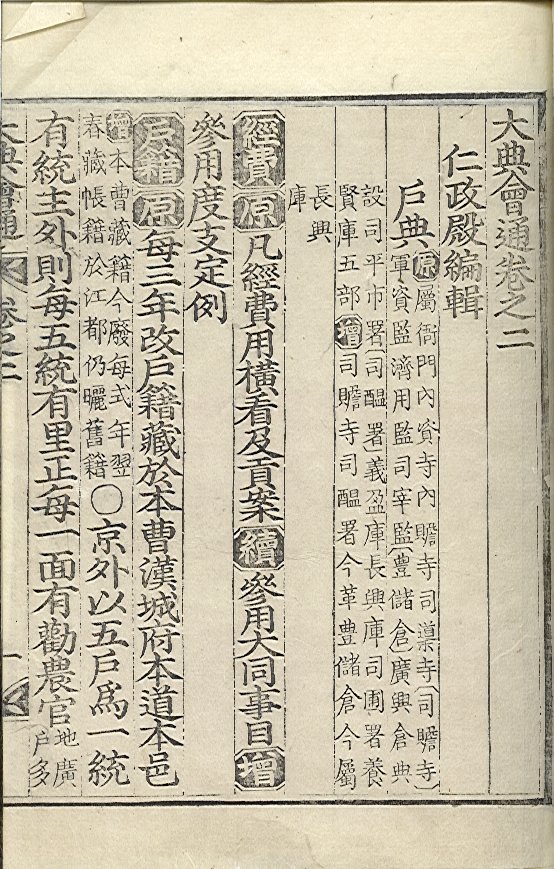 大典會通卷之二
仁政殿編輯
戶典 原 屬衙門內資寺內贍寺司䆃寺司贍寺
軍資監濟用監司宰監豊儲倉廣興倉典
設司平市署司醞署義盈庫長興庫司圃署養
賢庫五部 增 司贍寺司醞署今革豊儲倉今屬
長興
庫
經費 原 凡經費用橫看及貢案 續 參用大同事目 增
參用度支定例
戶籍 原 每三年改戶籍藏於本曹漢城府本道本邑
增 本曹藏籍今廢每式年翌
春藏帳籍於江都仍曬舊籍
○京外以五戶爲一統
有統主外則每五統有里正每一面有勸農官 地廣
戶多
大典會通 卷之二 一